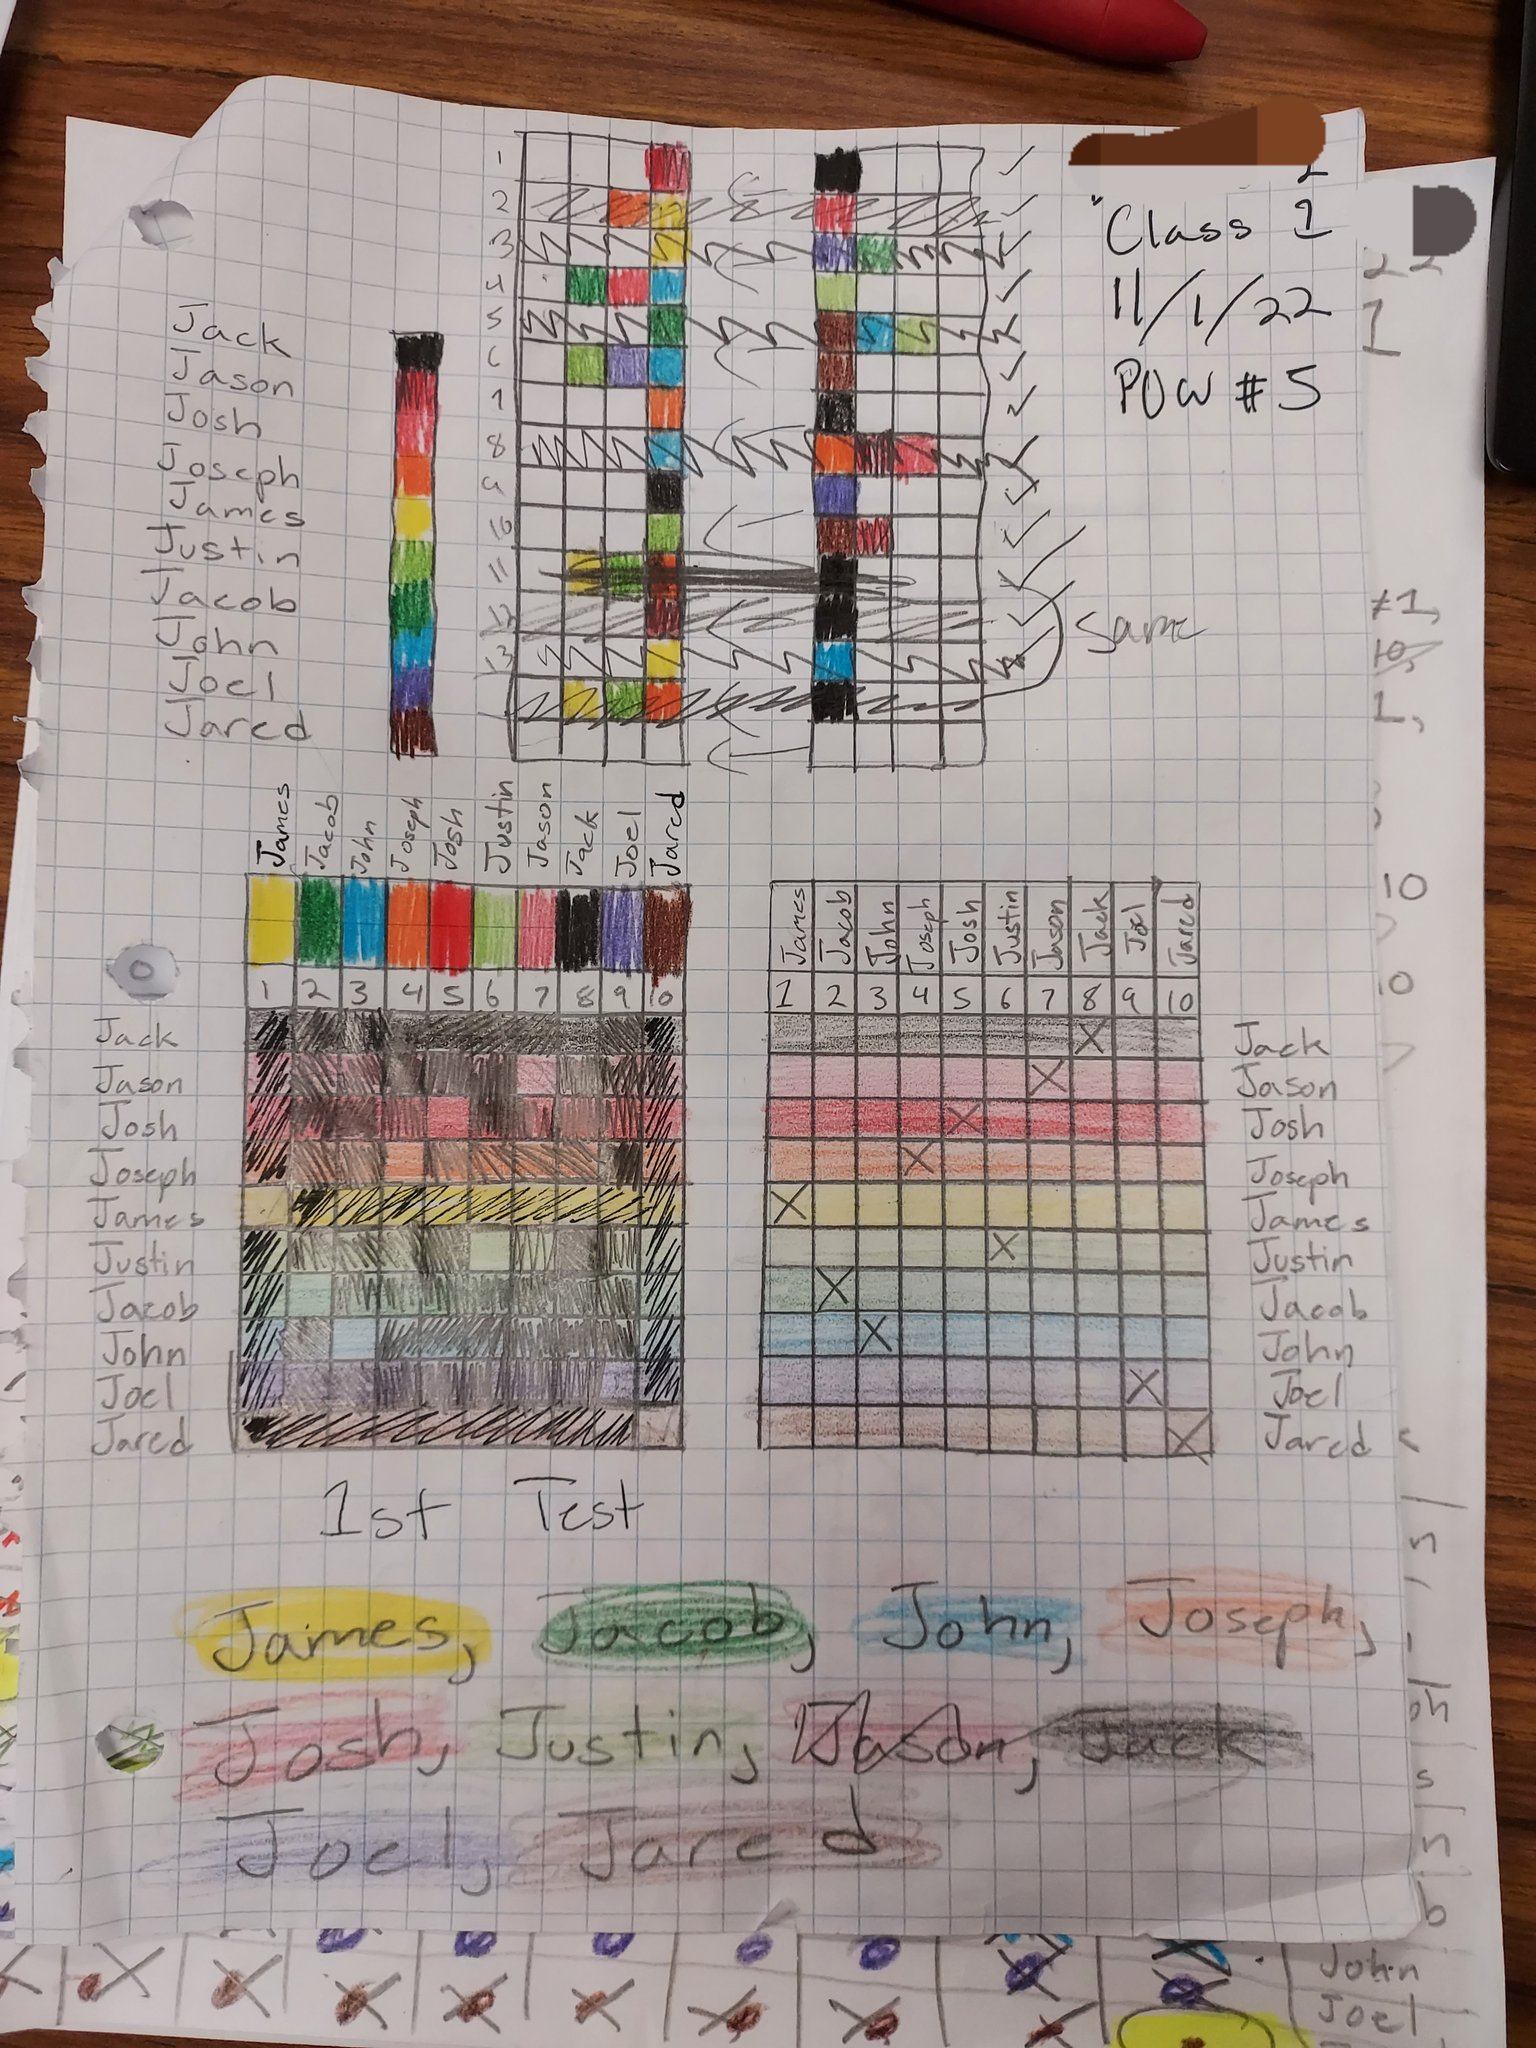 Class 1
11/1/22
POW #5
Jack
Jason
Josh
Joseph
James
Justin
Jacob
John
Joel
Jared
1
2
3
4
5
6
7
8
9
10
11
12
13
Same
James Jacob John Joseph Josh Justin Jason Jack Joel Jared
1 2 3 4 5 6 7 8 9 10
Jack
Jason
Josh
Joseph
James
Justin
Jacob
John
Joel
Jared
James Jacob John Joseph Josh Justin Jason Jack Joel Jared
1 2 3 4 5 6 7 8 9 10
Jack
Jason
Josh
Joseph
James
Justin
Jacob
John
Joel
Jared
1st Test
James, Jacob, John, Joseph,
Josh, Justin, Jason, Jack
Joel, Jared
10
John
Joel